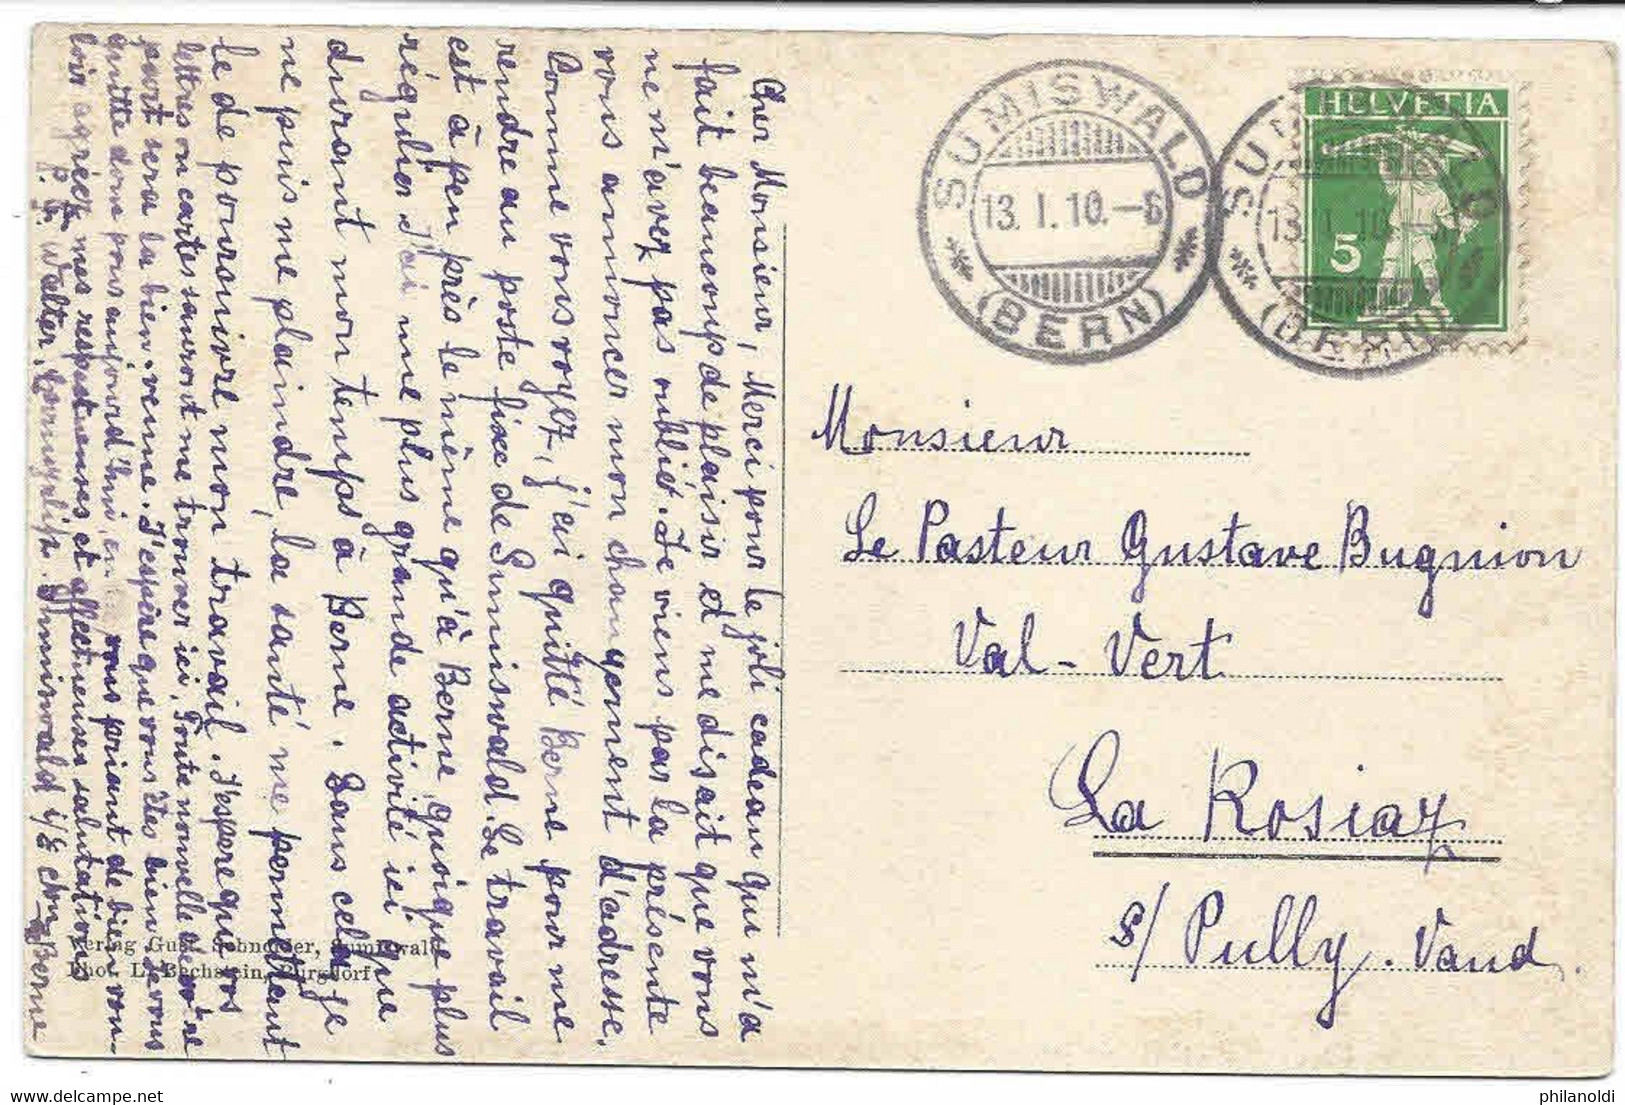 Cher Monsieur, Merci pour le joli cadeau qui m'a
fait beaucoup de plaisir et me disait que vous
ne m'avez pas oublié. Je viens par la présente
vous annoncer mon changement d'adresse.
Comme vous voyez, j'ai quitté Berne pour me
rendre au poste fixe de Sumiswald. Le travail
est à peu près le même qu'à Berne quoique plus
régulier. J'ai une plus grande activité ici que
durant mon temps à Berne. Sans cela je
ne puis me plaindre, la santé me permettant
de poursuivre mon travail. J'espère que vos
lettres ou cartes sauront me trouver ici. Toute nouvelle de votre
part sera la bien-venue. J'espère que vous êtes bien. Je vous
quitte donc pour aujourd'hui en vous priant de bien vou-
loir agréer mes respectueuses et affectueuses salutations
P. G. Walter, Sumiswald Ct. Berne
Verlag Gust. Schneider, Sumiswald
Phot. L. Bechstein, Burgdorf
SUMISWALD
13. I. 10.–6
(BERN)
SUMISWALD
13. I. 10.
(BERN)
HELVETIA
5
Monsieur
Le Pasteur Gustave Bugnion
Val-Vert
La Rosiaz
s/ Pully. Vaud.
philanoldi